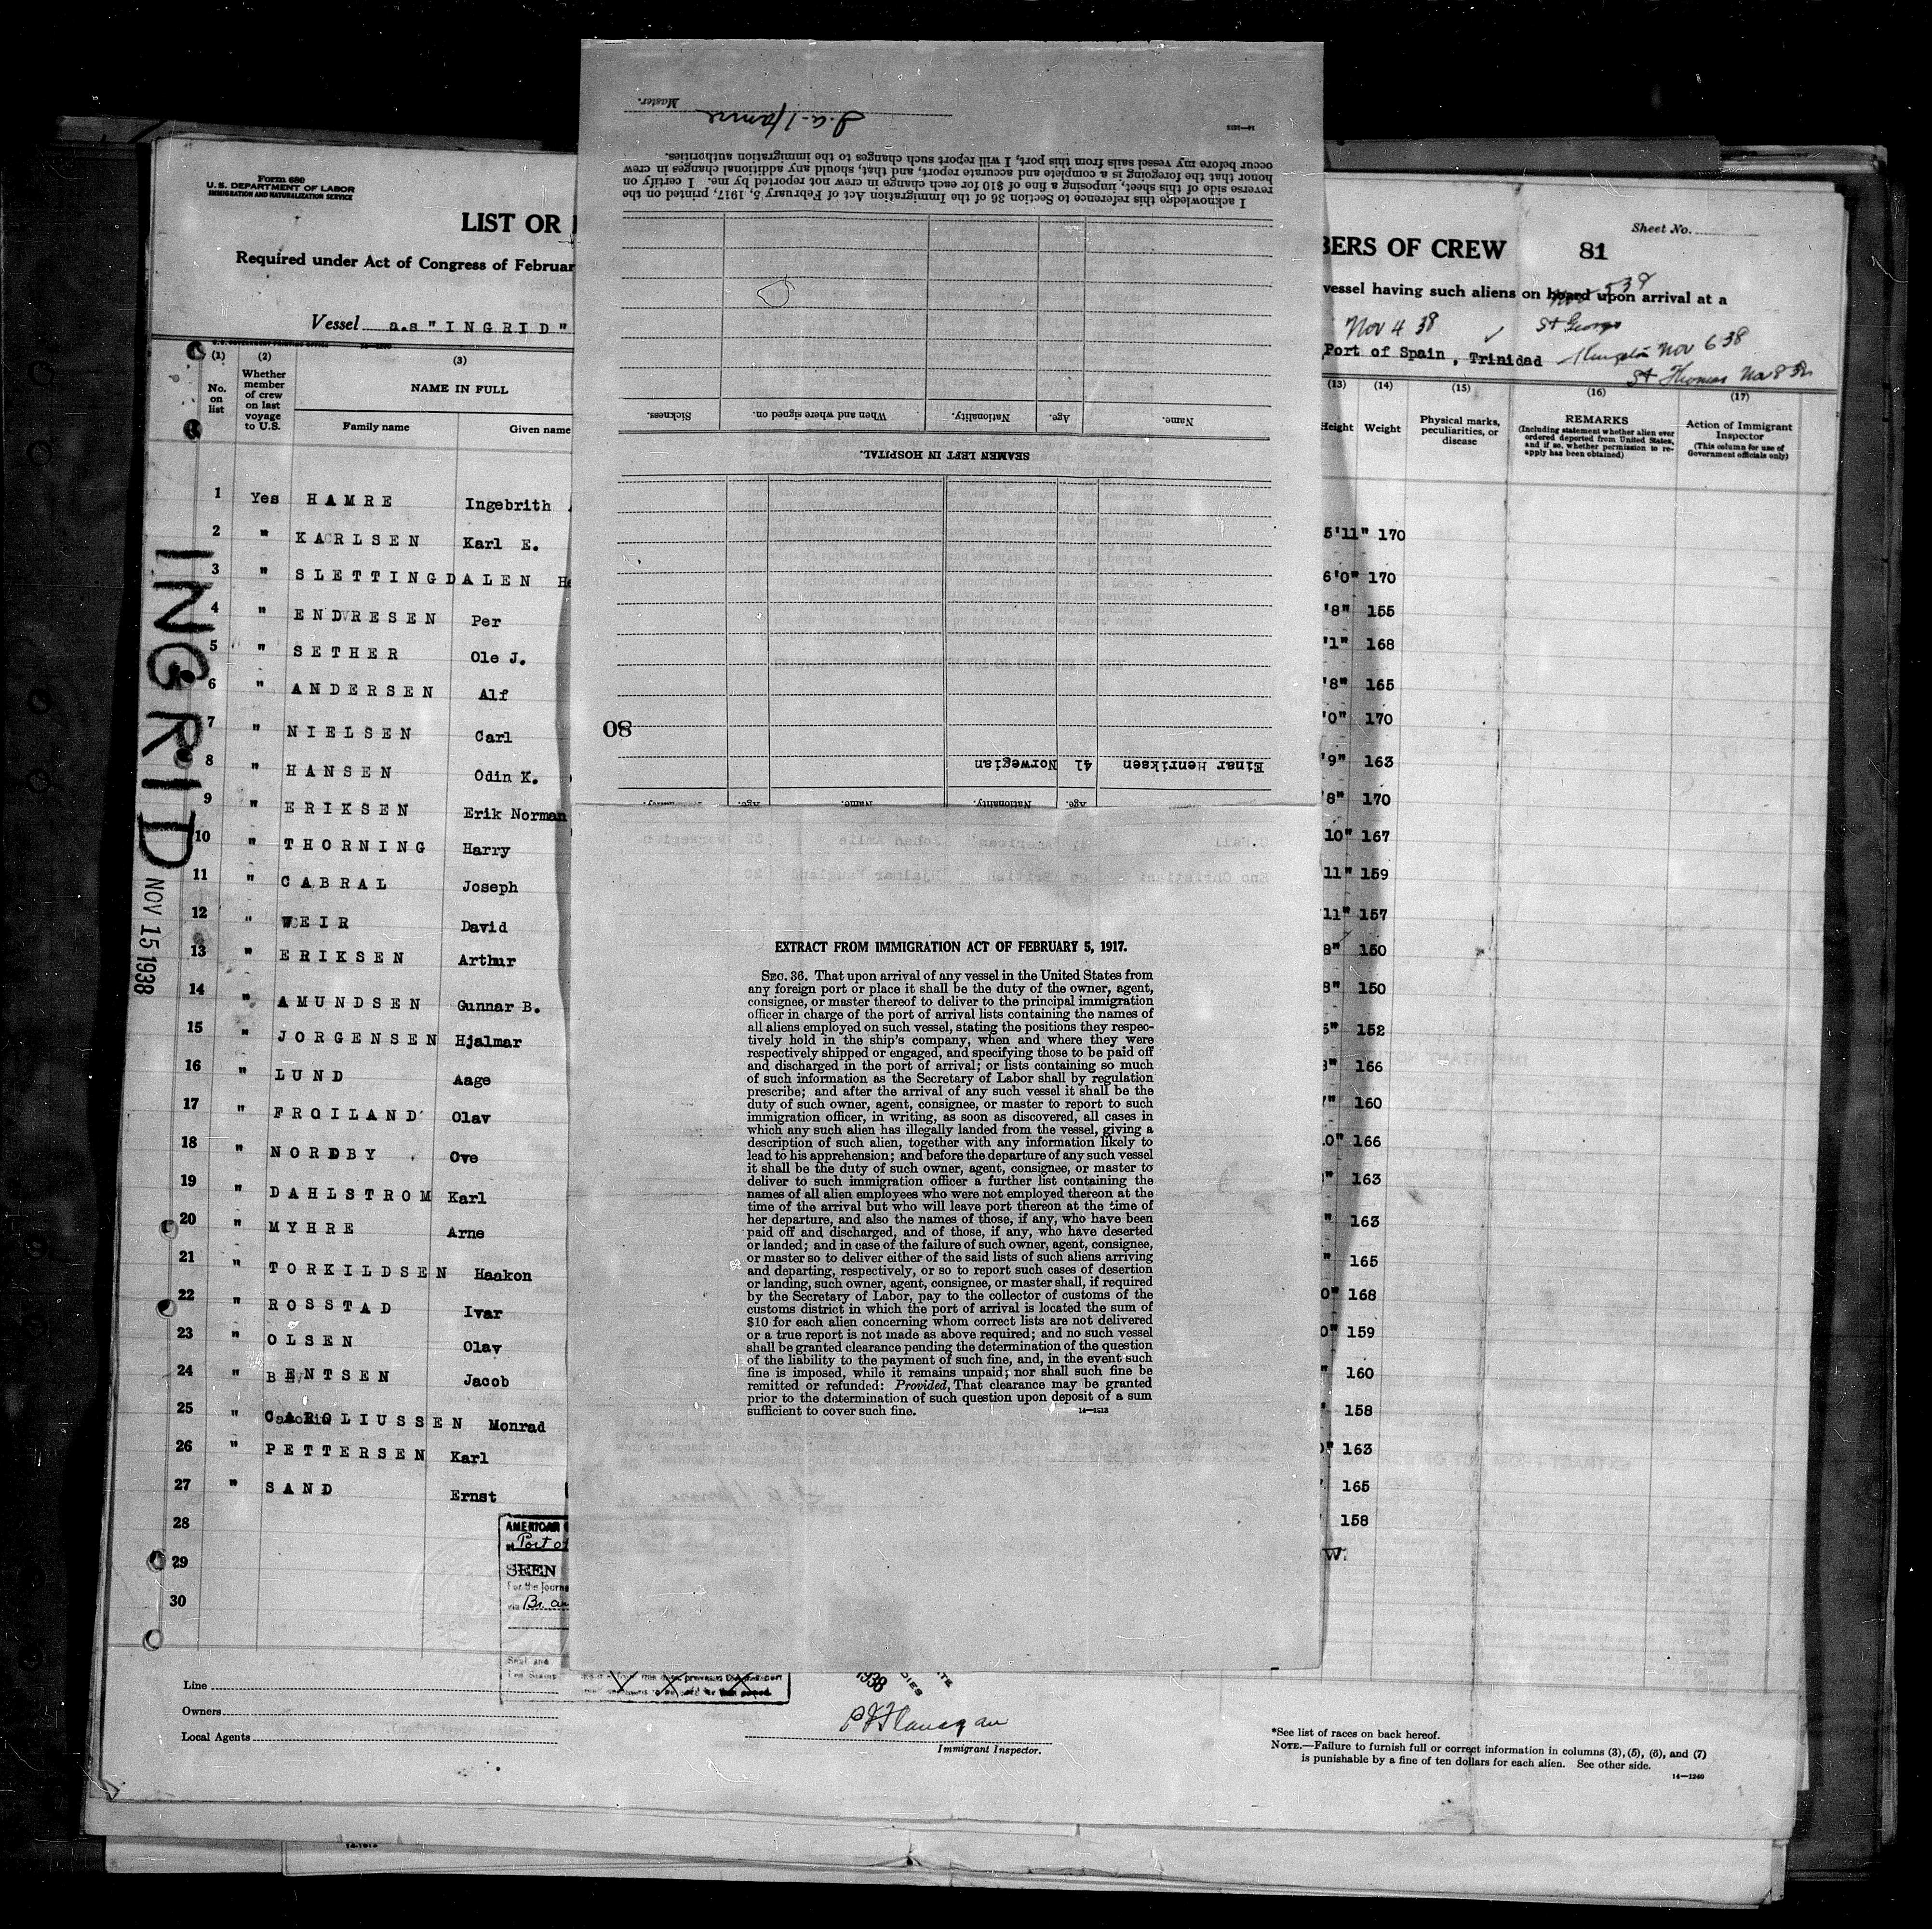 Form 680
U. S. DEPARTMENT OF LABOR
IMMIGRATION AND NATURALIZATION SERVICE
LIST OR
Required under Act of Congress of Februar
Vessel a.s "INGRID"
(1) (2) (3)
No. on list
Whether member of crew on last voyage to U.S.
NAME IN FULL
Family name Given name
1 Yes HAMRE Ingebrith
2 " KARLSEN Karl E.
3 " SLETTINGDALEN He
4 " ENDRESEN Per
5 " SETHER Ole J.
6 " ANDERSEN Alf
7 " NIELSEN Carl
8 " HANSEN Odin K.
9 " ERIKSEN Erik Norman
10 " THORNING Harry
11 " CABRAL Joseph
12 " WEIR David
13 " ERIKSEN Arthur
14 " AMUNDSEN Gunnar B.
15 " JORGENSEN Hjalmar
16 " LUND Aage
17 " FROILAND Olav
18 " NORDBY Ove
19 " DAHLSTROM Karl
20 " MYHRE Arne
21 " TORKILDSEN Haakon
22 " ROSSTAD Ivar
23 " OLSEN Olav
24 " BENTSEN Jacob
25 " CAROLIUSSEN Monrad
26 " PETTERSEN Karl
27 " SAND Ernst
28
29
30
INGRID
NOV 15 1938
AMERICAN
Port of
SEEN
For the Journe
via Br.
Seal and
Line
Owners
Local Agents
1938
P J Flanagan
Immigrant Inspector.
Master.
I. A. Hamre
14—1213
I acknowledge this reference to Section 36 of the Immigration Act of February 5, 1917, printed on the
reverse side of this sheet, imposing a fine of $10 for each change in crew not reported by me. I certify on
honor that the foregoing is a complete and accurate report, and that, should any additional changes in crew
occur before my vessel sails from this port, I will report such changes to the immigration authorities.
Name. Age. Nationality. When and where signed on. Sickness.
SEAMEN LEFT IN HOSPITAL.
80
Einar Henriksen 41 Norwegian
Age. Nationality. Name. Age.
EXTRACT FROM IMMIGRATION ACT OF FEBRUARY 5, 1917.
SEC. 36. That upon arrival of any vessel in the United States from
any foreign port or place it shall be the duty of the owner, agent,
consignee, or master thereof to deliver to the principal immigration
officer in charge of the port of arrival lists containing the names of
all aliens employed on such vessel, stating the positions they respec-
tively hold in the ship's company, when and where they were
respectively shipped or engaged, and specifying those to be paid off
and discharged in the port of arrival; or lists containing so much
of such information as the Secretary of Labor shall by regulation
prescribe; and after the arrival of any such vessel it shall be the
duty of such owner, agent, consignee, or master to report to such
immigration officer, in writing, as soon as discovered, all cases in
which any such alien has illegally landed from the vessel, giving a
description of such alien, together with any information likely to
lead to his apprehension; and before the departure of any such vessel
it shall be the duty of such owner, agent, consignee, or master to
deliver to such immigration officer a further list containing the
names of all alien employees who were not employed thereon at the
time of the arrival but who will leave port thereon at the time of
her departure, and also the names of those, if any, who have been
paid off and discharged, and of those, if any, who have deserted
or landed; and in case of the failure of such owner, agent, consignee,
or master so to deliver either of the said lists of such aliens arriving
and departing, respectively, or so to report such cases of desertion
or landing, such owner, agent, consignee, or master shall, if required
by the Secretary of Labor, pay to the collector of customs of the
customs district in which the port of arrival is located the sum of
$10 for each alien concerning whom correct lists are not delivered
or a true report is not made as above required; and no such vessel
shall be granted clearance pending the determination of the question
of the liability to the payment of such fine, and, in the event such
fine is imposed, while it remains unpaid; nor shall such fine be
remitted or refunded: Provided, That clearance may be granted
prior to the determination of such question upon deposit of a sum
sufficient to cover such fine.
14—1213
Sheet No.
BERS OF CREW 81
vessel having such aliens on board upon arrival at a
Nov 5 38
Nov 4 38 St George
Port of Spain, Trinidad Kingston Nov 6 38
St Thomas Nov 8 38
(13) (14) (15) (16) (17)
Height Weight
Physical marks, peculiarities, or disease
REMARKS
(Including statement whether alien ever ordered deported from United States, and if so, whether permission to re-apply has been obtained)
Action of Immigrant Inspector
(This column for use of Government officials only)
5'11" 170
6'0" 170
'8" 155
'1" 168
'8" 165
'0" 170
'9" 163
'8" 170
10" 167
11" 159
11" 157
8" 150
8" 150
6" 152
8" 166
7" 160
10" 166
" 163
" 163
" 165
0" 168
0" 159
" 160
" 158
0" 163
165
158
W.
*See list of races on back hereof.
NOTE.—Failure to furnish full or correct information in columns (3), (5), (6), and (7)
is punishable by a fine of ten dollars for each alien. See other side.
14—1240